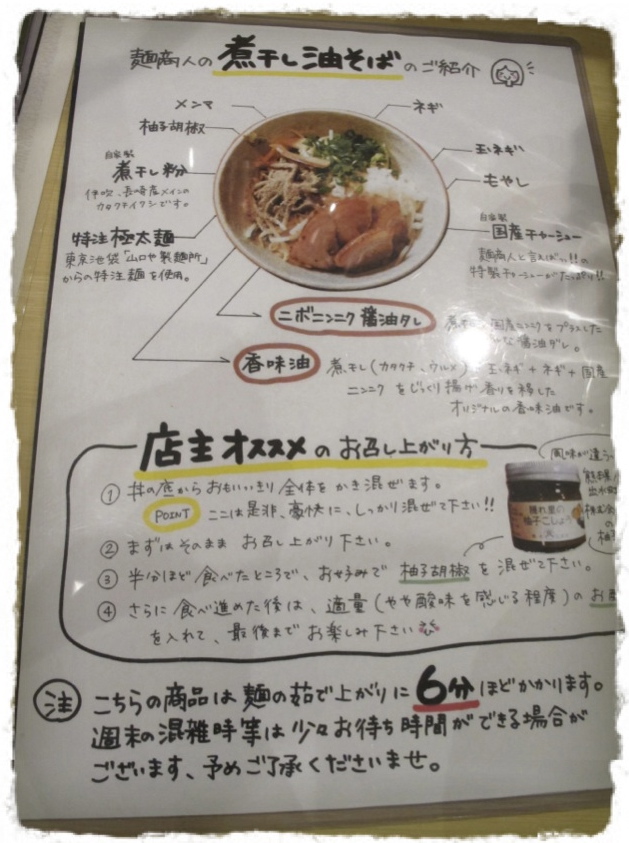 麺商人の煮干し油そばのご紹介
メンマ
ネギ
柚子胡椒
玉ネギ
自家製
煮干し粉
もやし
伊吹、長崎産メインの
カタクチイワシです。
自家製
国産チャーシュー
特注極太麺
東京池袋「山口や製麺所」
からの特注麺を使用。
麺商人と言えばッ!!の
特製チャーシューがたっぷり!!
ニボニンニク醤油ダレ
国産ニンニクをプラスした
醤油ダレ。
香味油
煮干し(カタクチ、ウルメ)
玉ネギ+ネギ+国産
ニンニクをじっくり揚げ香りを移した
オリジナルの香味油です。
店主オススメのお召し上がり方
風味が違う
① 丼の底からおもいっきり全体をかき混ぜます。
POINT ここは是非、豪快に、しっかり混ぜて下さい!!
隠れ里の
柚子こしょう
② まずはそのままお召し上がり下さい。
③ 半分ほど食べたところで、お好みで柚子胡椒を混ぜて下さい。
④ さらに食べ進めた後は、適量(やや酸味を感じる程度)のお
を入れて、最後までお楽しみ下さい
注 こちらの商品は麺の茹で上がりに6分ほどかかります。
週末の混雑時等は少々お待ち時間ができる場合が
ございます、予めご了承くださいませ。